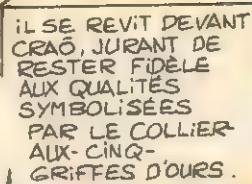 iL SE REViT DEVANT
CRAÔ, JURANT DE
RESTER FiDÈLE
AUX QUALiTÉS
SYMBOLiSÉES
PAR LE COLLiER-
AUX-CiNQ-
GRiFFES D'OURS.